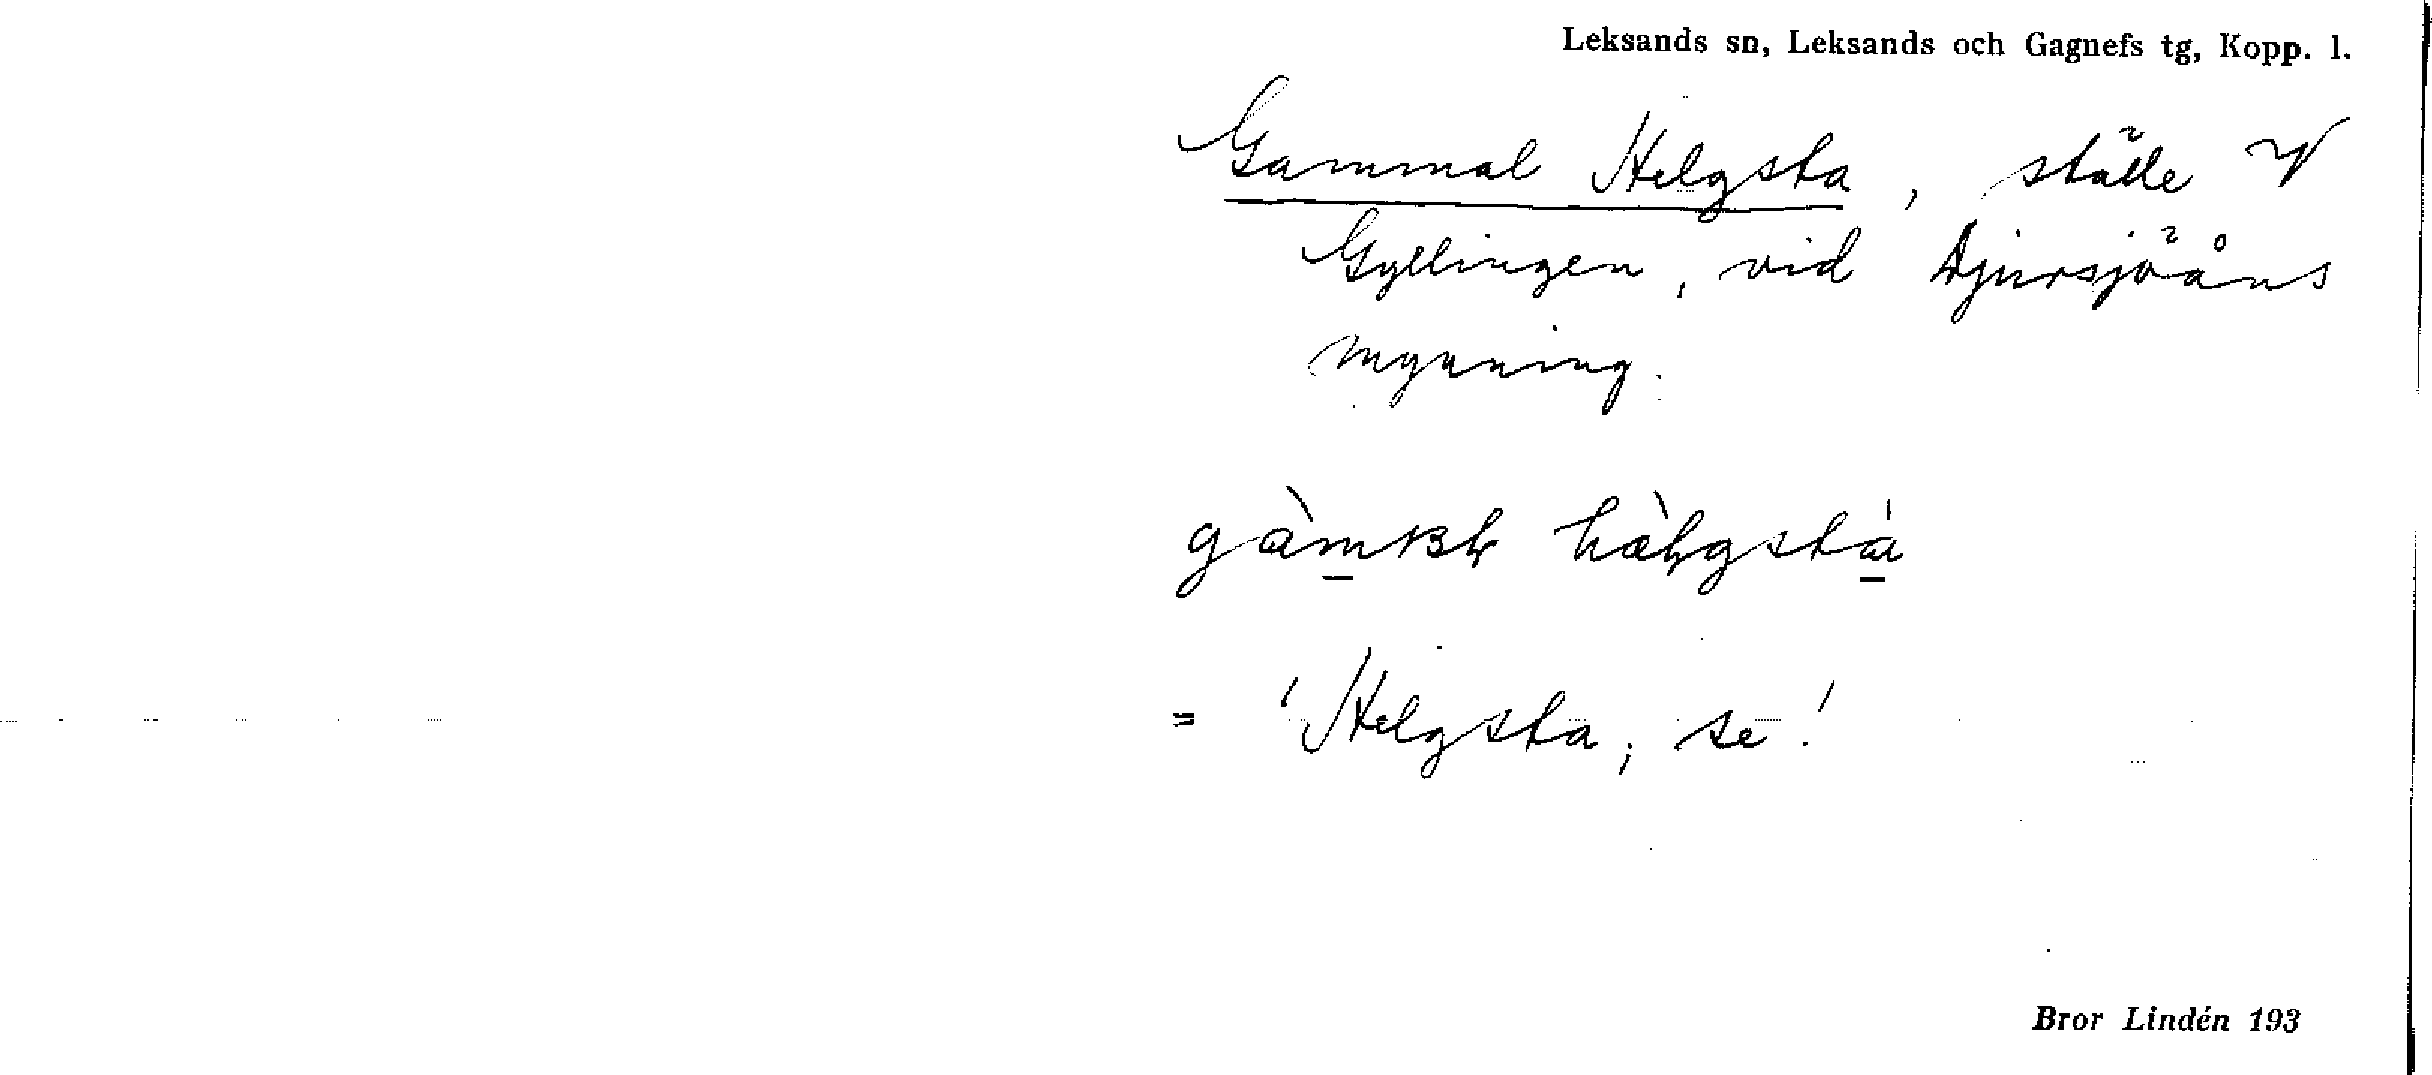 Leksands sn, Leksands och Gagnefs tg, Kopp. l.
Gammal Helgsta, ställe V
Gyllingen, vid Djursjöåns
mynning.
= 'Helgsta, se!
Bror Lindén 193